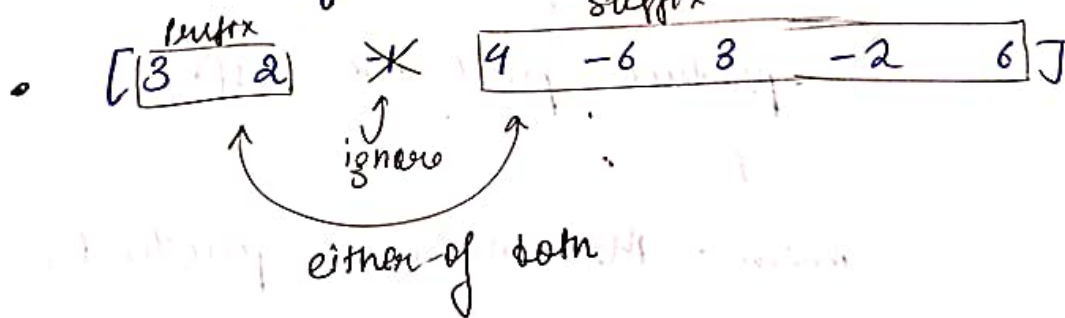 prefix suffix
• [3 2 -1 4 -6 3 -2 6]
ignore
either of both